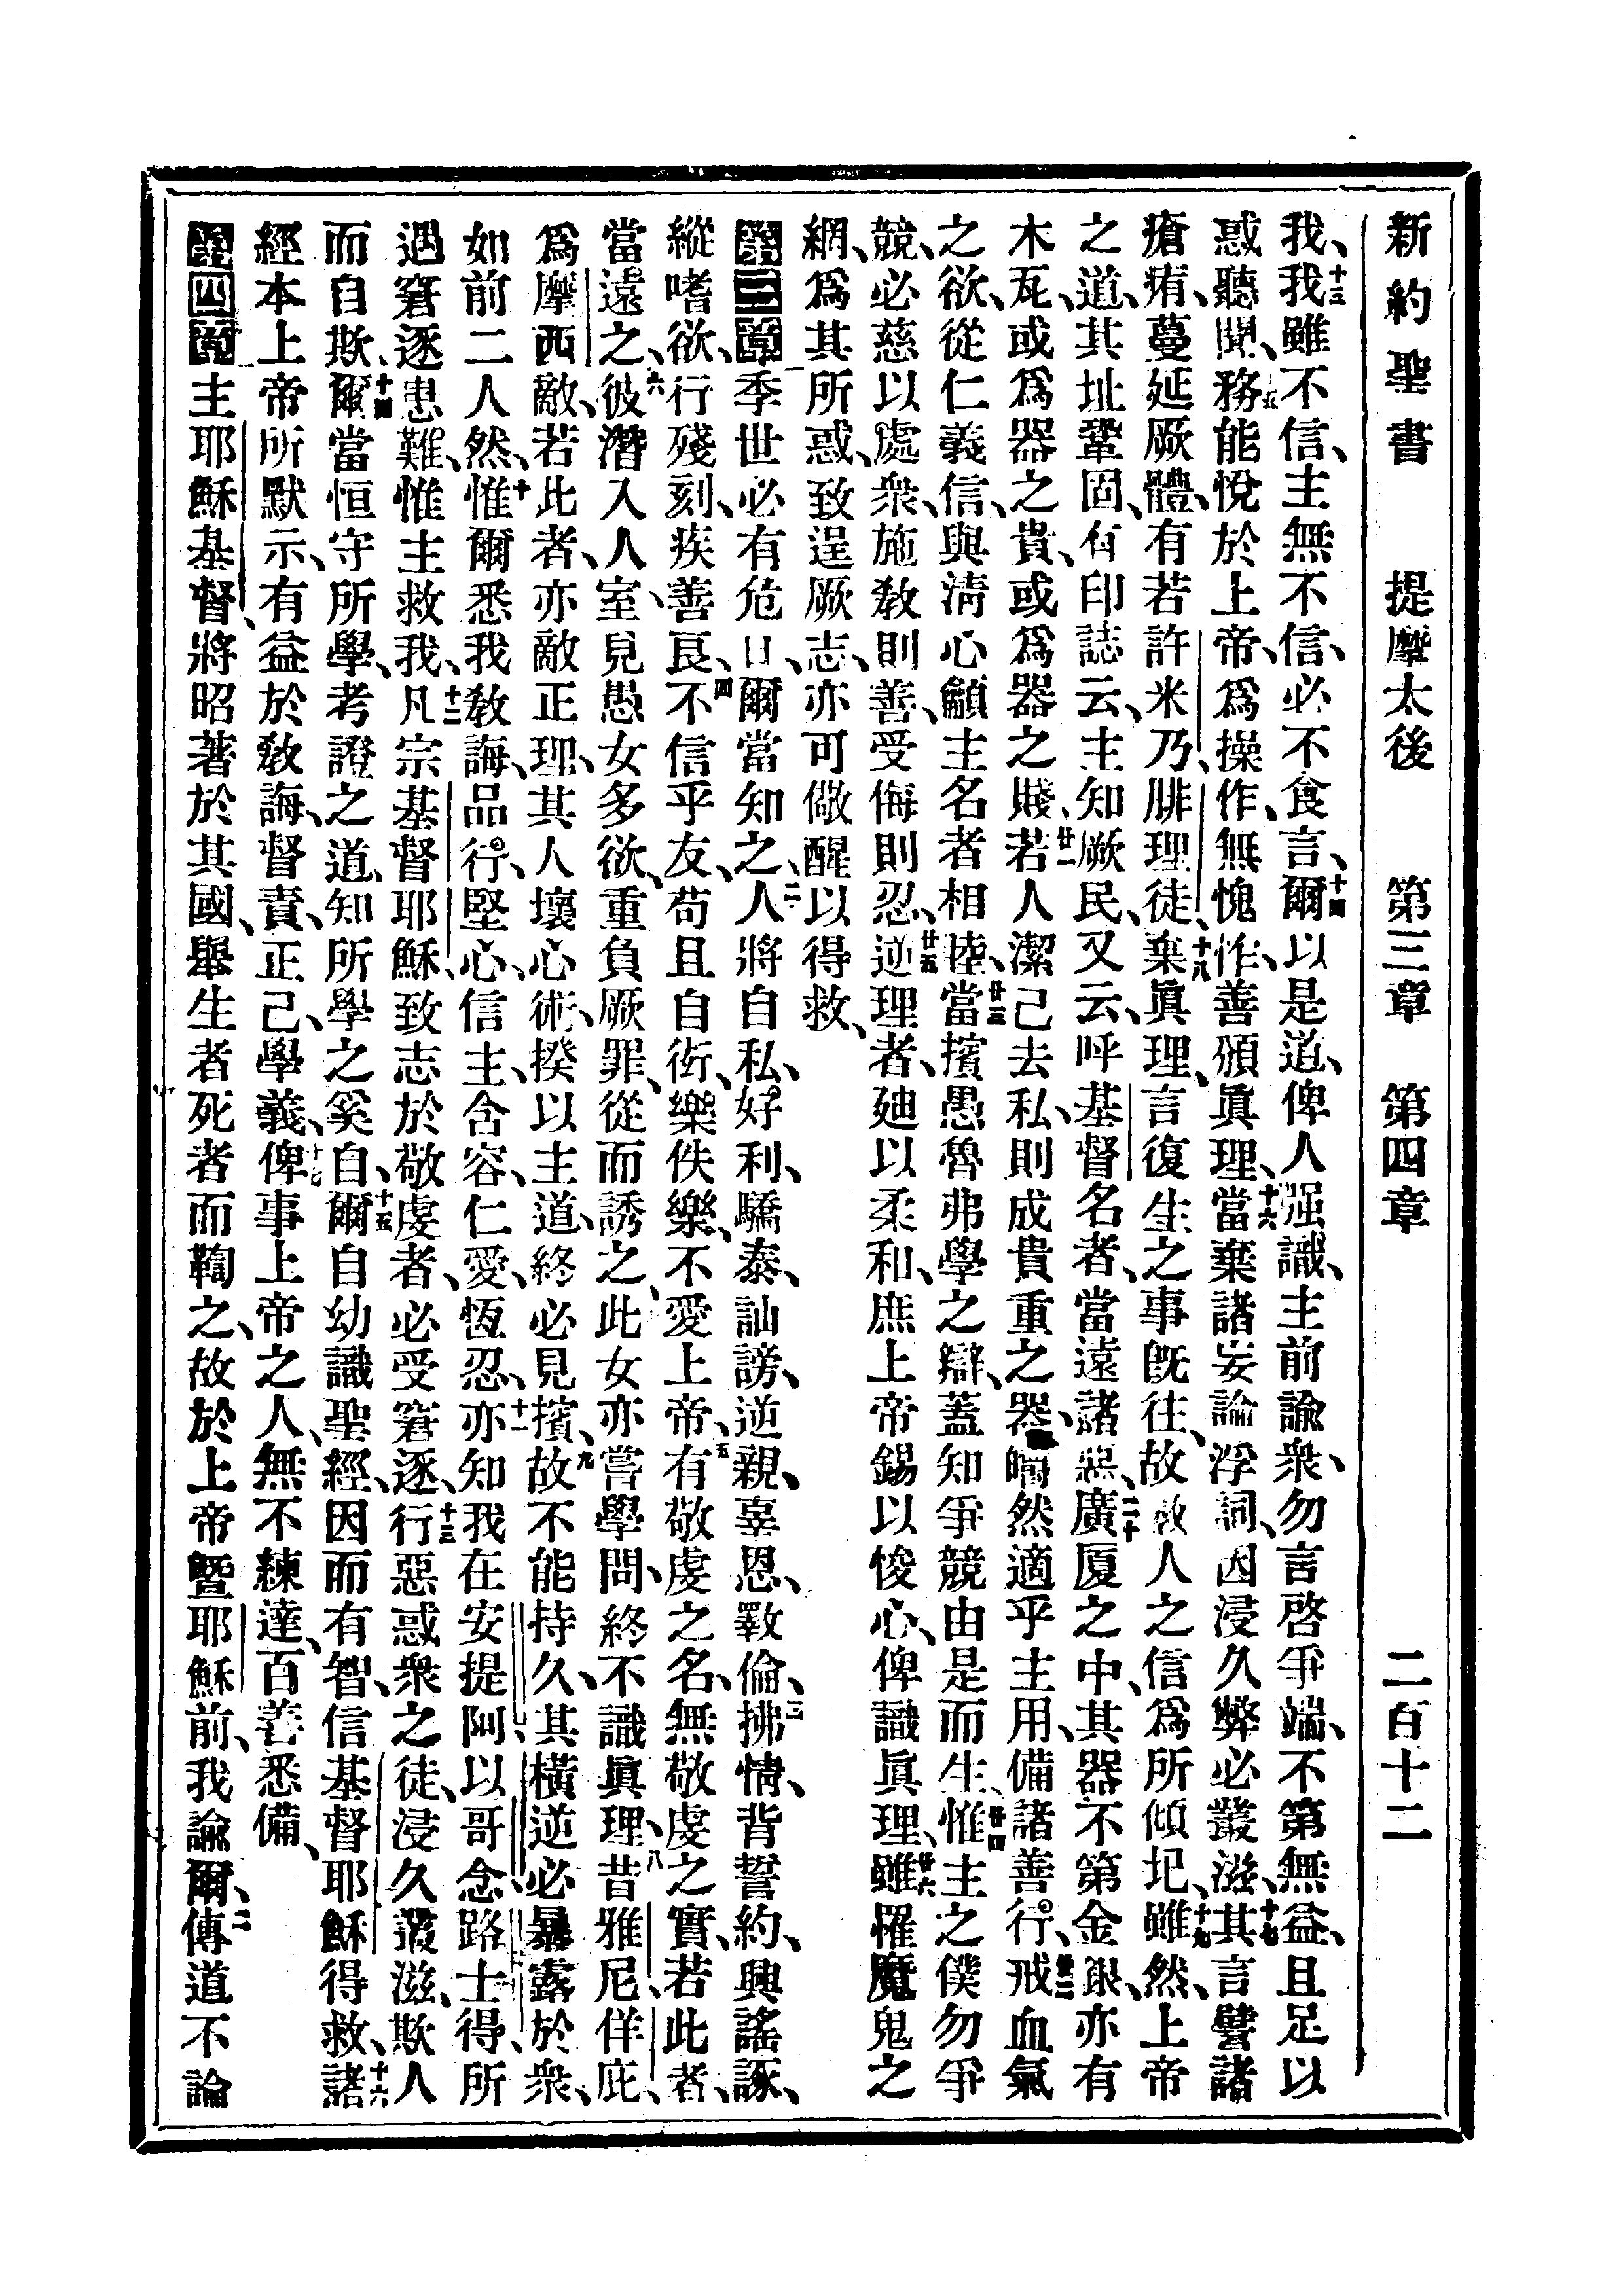 新約聖書 提摩太後 第三章 第四章 二百十二
我、十三我雖不信、主無不信、必不食言、十四爾以是道、俾人强識、主前諭衆、勿言啓爭端、不第無益、且足以
惑聽聞、十五務能悅於上帝、爲操作、無愧怍、善頒眞理、十六當棄諸妄論浮詞、因浸久弊必叢滋、十七其言譬諸
瘡痏、蔓延厥體、有若許米乃、腓理徒、十八棄眞理、言復生之事旣往、故敎人之信爲所傾圮、十九雖然、上帝
之道、其址鞏固、有印誌云、主知厥民、又云、呼基督名者、當遠諸惡、二十廣厦之中、其器不第金銀、亦有
木瓦、或爲器之貴、或爲器之賤、廿一若人潔己去私、則成貴重之器、皭然適乎主用、備諸善行、廿二戒血氣
之欲、從仁義信、與淸心龥主名者相陸、廿三當擯愚魯弗學之辯、蓋知爭競由是而生、廿四惟主之僕勿爭
競、必慈以處衆、施敎則善、受侮則忍、廿五逆理者、廸以柔和、庶上帝錫以悛心、俾識眞理、廿六雖罹魔鬼之
網、爲其所惑、致逞厥志、亦可儆醒以得救、
第三章 一季世必有危日、爾當知之、二人將自私、好利、驕泰、訕謗、逆親、辜恩、斁倫、三拂情、背誓約、興謠諑、
縱嗜欲、行殘刻、疾善良、四不信乎友、苟且自衒、樂佚樂、不愛上帝、五有敬虔之名、無敬虔之實、若此者、
當遠之、六彼潛入人室、見愚女多欲、重負厥罪、從而誘之、此女亦嘗學問、終不識眞理、八昔雅尼、佯庇、
爲摩西敵、若此者、亦敵正理、其人壞心術、揆以主道、終必見擯、九故不能持久、其橫逆必暴露於衆、
如前二人然、十惟爾悉我敎誨、品行、堅心、信主、含容、仁愛、恆忍、十一亦知我在安提阿、以哥念、路士得、所
遇窘逐患難、惟主救我、十二凡宗基督耶穌、致志於敬虔者、必受窘逐、十三行惡惑衆之徒、浸久叢滋、欺人
而自欺、十四爾當恒守所學、考證之道、知所學之奚自、十五爾自幼識聖經、因而有智、信基督耶穌得救、十六諸
經本上帝所默示、有益於敎誨、督責、正己、學義、十七俾事上帝之人、無不練達、百善悉備、
第四章 一主耶穌基督、將昭著於其國、舉生者死者而鞫之、故於上帝曁耶穌前、我諭爾、二傳道不論